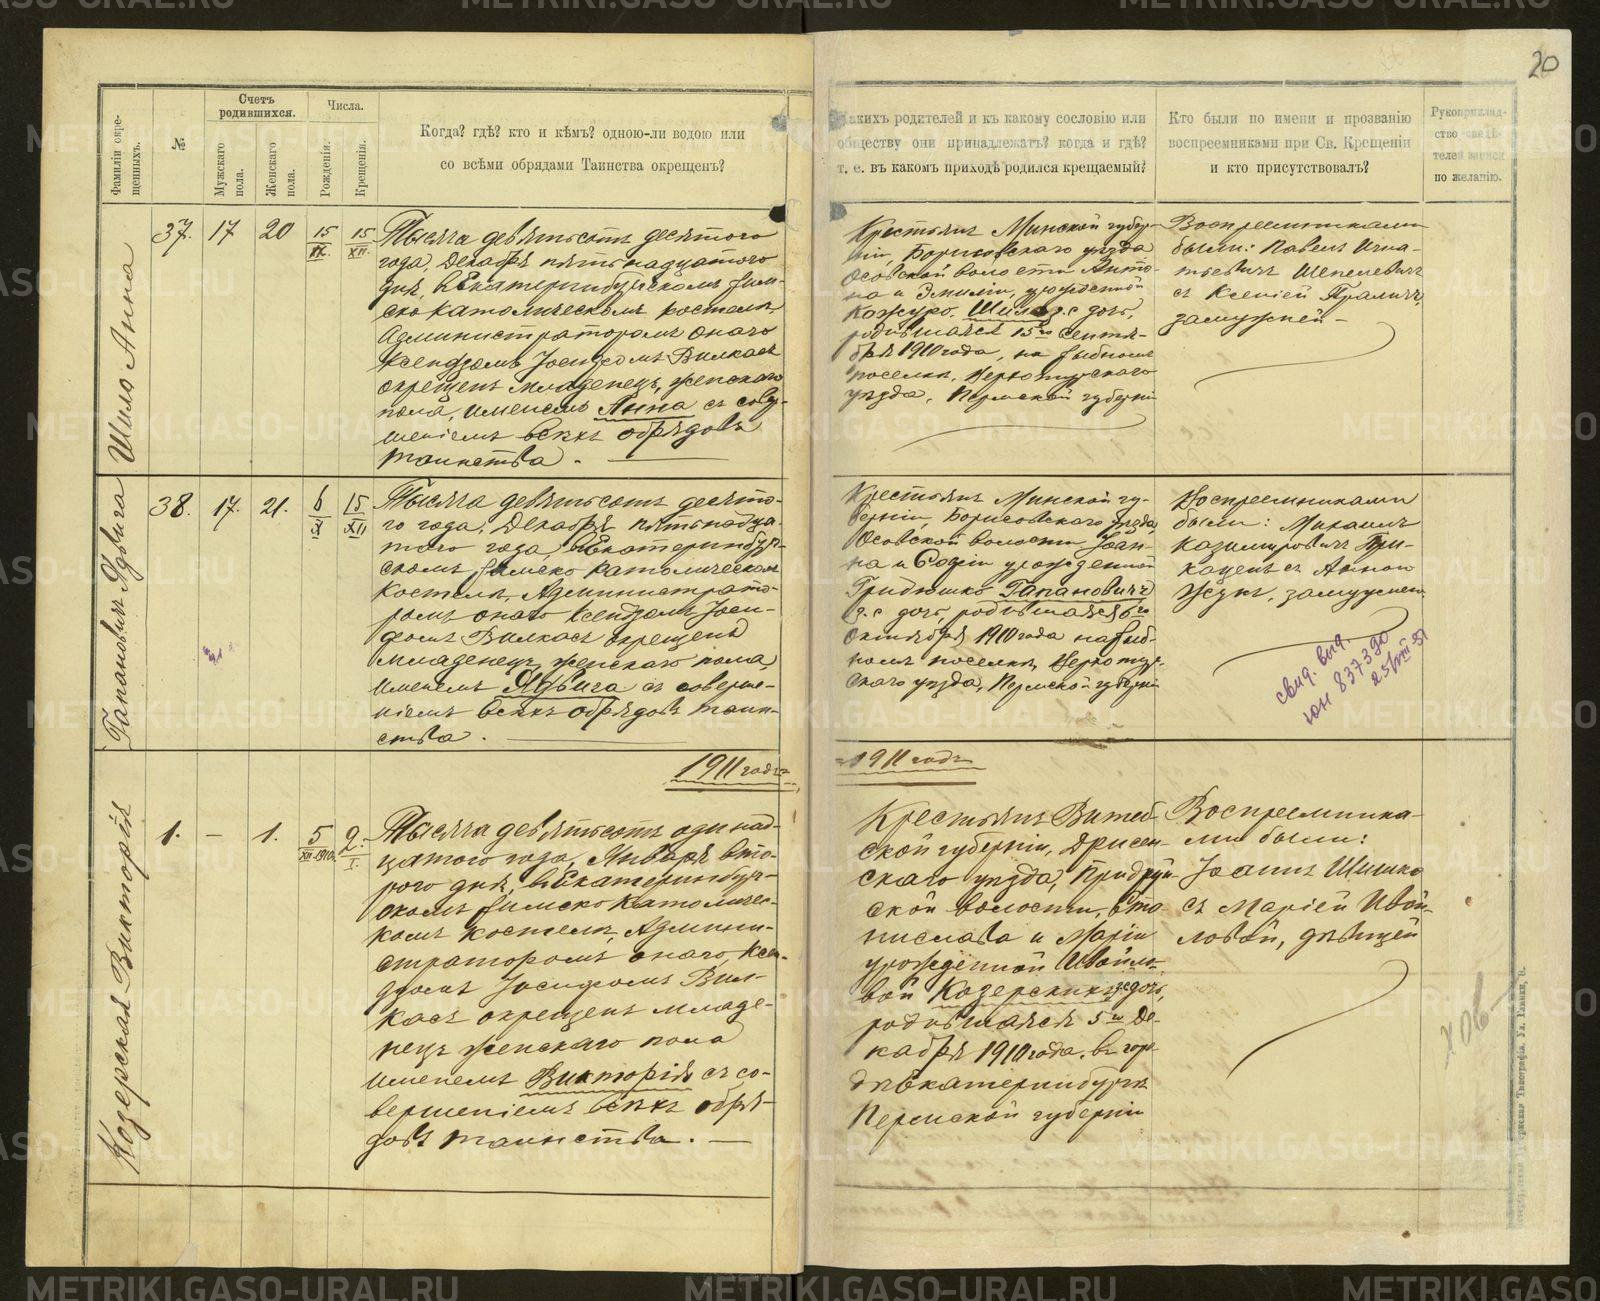 20
Фамиліи окре-
щенныхъ.
№
Счетъ
родившихся.
Мужскаго
пола.
Женскаго
пола.
Числа.
Рожденія.
Крещенія.
Когда? гдѣ? кто и кѣмъ? одною-ли водою или
со всѣми обрядами Таинства окрещенъ?
Какихъ родителей и къ какому сословію или
обществу они принадлежатъ? когда и гдѣ?
т. е. въ какомъ приходѣ родился крещаемый?
Кто были по имени и прозванію
воспреемниками при Св. Крещеніи
и кто присутствовалъ?
Рукоприклад-
ство свидѣ-
телей записи
по желанію.
Шило Анна
37. 17 20 15 IX. 15 XII.
Тысяча девятьсотъ десятого
года, Декабря пятьнадцатого
дня, въ Екатеринбургскомъ Рим-
ско Католическомъ костелѣ,
Администраторомъ онаго
Ксендзомъ Іосифомъ Вилкасъ
окрещенъ младенецъ, женскаго
пола, именемъ Анна съ совер-
шеніемъ всѣхъ обрядовъ
таинства.
Крестьянъ Минской губер-
ніи, Борисовскаго уѣзда
Осовской волости Анто-
на и Эмиліи, урожденной
Кожуро, Шило з. с дочь,
родившаяся 15го Сентя-
бря 1910 года, на Рыбномъ
поселкѣ, Верхотурскаго
уѣзда, Пермской губерніи
Воспреемниками
были: Павелъ Игна-
тьевичъ Шепелевичъ
съ Ксеніей
замужней
Гапановичъ Ядвига
38. 17. 21. 6 XI 15 XII
Тысяча девятьсотъ десято-
го года, Декабря пятьнадца-
того года въ Екатеринбург-
скомъ Римско Католическомъ
Костелѣ, Администрато-
ромъ онаго Ксендзомъ Іоси-
фомъ Вилкасъ окрещенъ
младенецъ, женскаго пола,
именемъ Ядвига съ соверше-
ніемъ всѣхъ обрядовъ таин-
ства.
Крестьянъ Минской гу-
берніи, Борисовскаго уѣзда,
Осовской волости Іоан-
на и Софіи урожденной
Гридюшко Гапановичъ
з. с дочь, родившаяся 6го
Октября 1910 года на Рыб-
номъ поселкѣ, Верхотур-
скаго уѣзда, Пермской губерніи
Воспреемниками
были: Михаилъ
Казимировичъ
съ Анной
Жукъ, замужней.
свид. выд.
юн 837390
25/VIII 51
1911 годъ
1911 годъ
Козерская Викторія
1. – 1. 5 XII-1910 2. I.
Тысяча девятьсотъ одиннад-
цатого года, Января вто-
рого дня, въ Екатеринбург-
скомъ Римско Католичес-
комъ костелѣ, Админи-
страторомъ онаго, Ксен-
дзомъ Іосифомъ Вил-
касъ окрещенъ младе-
нецъ женскаго пола
именемъ Викторія съ со-
вершеніемъ всѣхъ обря-
довъ таинства.
Крестьянъ Витеб-
ской губерніи, Дрисен-
скаго уѣзда, Придруй-
ской волости,
и Маріи
урожденной Ивойло-
вой Козерскихъ з. с дочь,
родившаяся 5го Де-
кабря 1910 года, въ горо-
дѣ Екатеринбургѣ
Пермской губерніи
Воспреемника-
ми были:
Іоаннъ Шишко
съ Маріей Ивой-
ловой, дѣвицей
METRIKI.GASO-URAL.RU